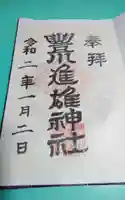 奉拝
豊川進雄神社
令和二年一月二日